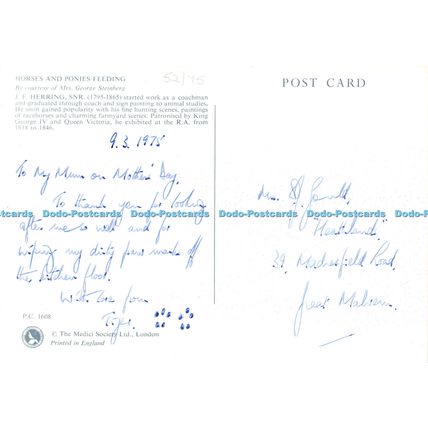 HORSES AND PONIES FEEDING
By courtesy of Mrs. George Steinberg
J. F. HERRING, SNR. (1795-1865) started work as a coachman
and graduated through coach and sign painting to animal studies.
He soon gained popularity with his fine hunting scenes, paintings
of racehorses and charming farmyard scenes. Patronised by King
George IV and Queen Victoria, he exhibited at the R.A. from
1818 to 1846.
52/75
9.3.1975
To My Mum on Mothers Day.
To thank you for looking
after me so well and for
wiping my dirty paw marks off
the kitchen floor.
With love from
Tiger.
P.C. 1608
© The Medici Society Ltd., London
Printed in England
POST CARD
Mrs.
"Heathlands"
39, Madresfield Road,
Great Malvern.
Dodo-Postcards Dodo-Postcards Dodo-Postcards Dodo-Postcards